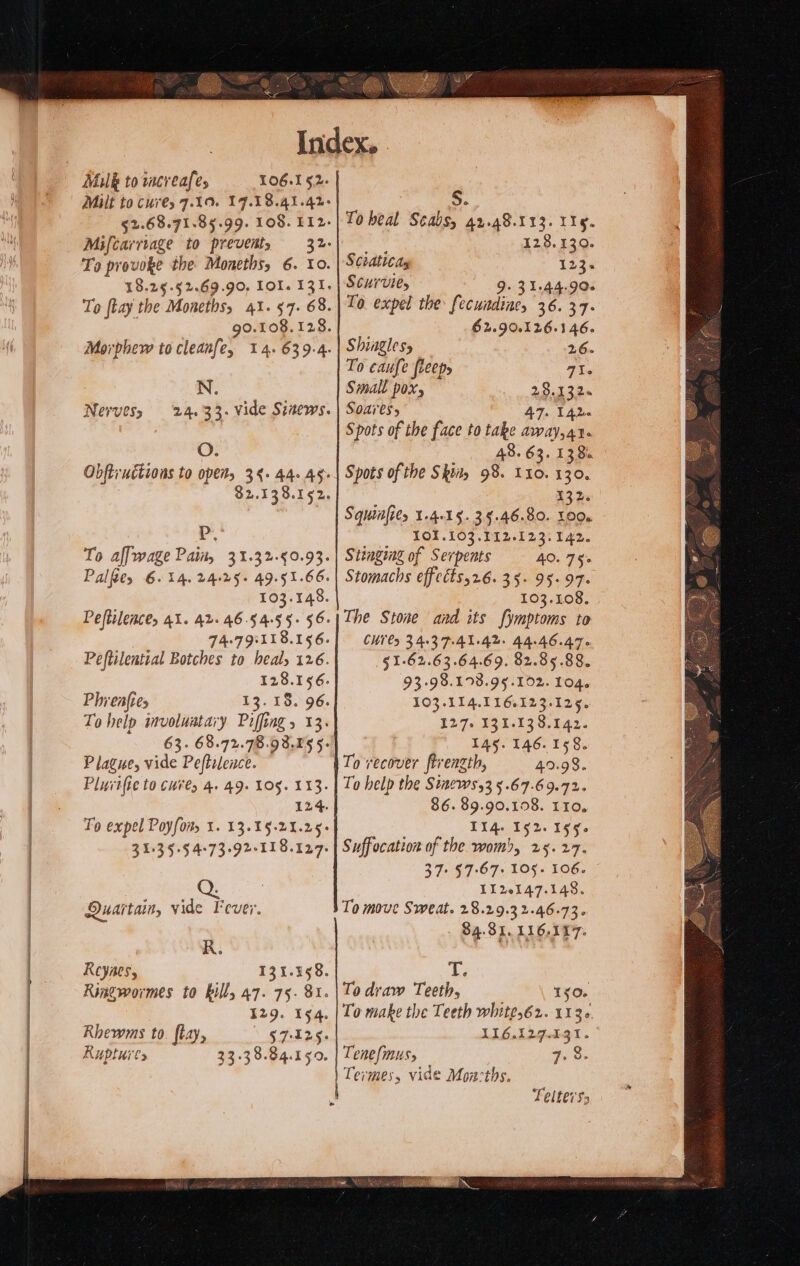 Index.
Milk to increaſe, 106.152.
Milt to cure, 7.10. 17.18.41.42.
52.68.71.85.99. 108. 112.
Miſcarriage to prevent, 32.
To provoke the Moneths, 6. 10.
18.25.52.69.90. 101. 131.
To ſtay the Moneths, 41. 57. 68.
90.108.128.
Morphew to cleanſe, 14. 639.4.
N.
Nerves, 24.33. vide Sinews.
O.
Obſtructions to open, 35. 44. 45.
82.138.152.
P.
To aſſwage Pain, 31.32.50.93.
Palſie, 6.14.24.25. 49.51.66.
103.148.
Peſtilence, 41. 42. 46.54.55. 56.
74.79.118.156.
Peſtilential Botches to heal, 126.
128.156.
Phrenſie, 13. 18. 96.
To help involuntary Piſſing, 13.
63. 68.72.78.98.155.
Plague, vide Peſtilence.
Pluriſie to cure, 4. 49. 105. 113.
124.
To expel Poyſon, 1. 13.15.21.25.
31.35.54.73.92.118.127.
Q.
Quartain, vide Fever.
R.
Reynes, 131.158.
Ringwormes to kill, 47. 75. 81.
129. 154.
Rhewms to ſtay, 57.125.
Rupture, 33.38.84.150.
S.
To heal Scabs, 42.48.113. 115.
128.130.
Sciatica, 123.
Scurvie, 9. 31.44.90.
To expel the ſecundine, 36. 37.
62.90.126.146.
Shingles, 26.
To cauſe ſleep, 71.
Small pox, 28.132.
Soares, 47. 142.
Spots of the face to take away, 41.
48. 63. 138.
Spots of the Skin, 98. 110. 130.
132.
Squinſie, 1.4.15. 35.46.80. 100.
101.103.112.123.142.
Stinging of Serpents 40. 75.
Stomachs effects, 26. 35. 95. 97.
103.108.
The Stone and its ſymptoms to
cure, 34.37.41.42. 44.46.47.
51.62.63.64.69. 82.85.88.
93.98.198.95.102. 104.
103.114.116.123.125.
127. 131.138.142.
145. 146. 158.
To recover ſtrength, 49.98.
To help the Sinews, 35.67.69.72.
86. 89.90.108. 110.
114. 152. 155.
Suffocation of the womb, 25. 27.
37. 57.67. 105. 106.
112.147.148.
To move Sweat. 28.29.32.46.73.
84.81. 116.117.
T.
To draw Teeth, 150.
To make the Teeth white, 62. 113.
116.127.131.
Teneſmus, 7. 8.
Termes, vide Moneths.
Tetters,